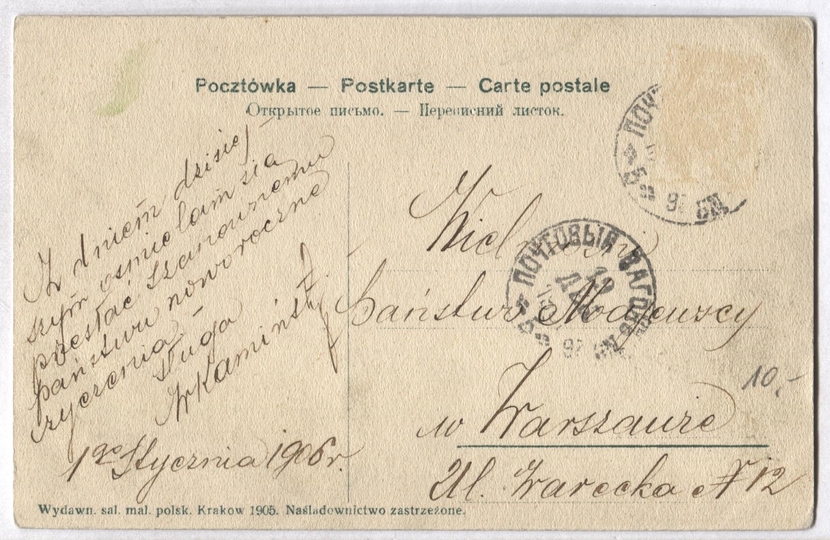 Pocztówka — Postkarte — Carte postale
Открытое письмо. — Переписний листок.
Z dniem dzisiej-
szym ośmielam się
przesłać szanownemu
państwu noworoczne
życzenia -
Sługa
WKamiński
1go Stycznia 1906 r.
Wielmożni
państwo
w Warszawie
Ul. Warecka № 12
10,-
ПОЧТОВЫЙ ВАГОНЪ
ПОЧ
Wydawn. sal. mal. polsk. Krakow 1905. Naśladownictwo zastrzeżone.